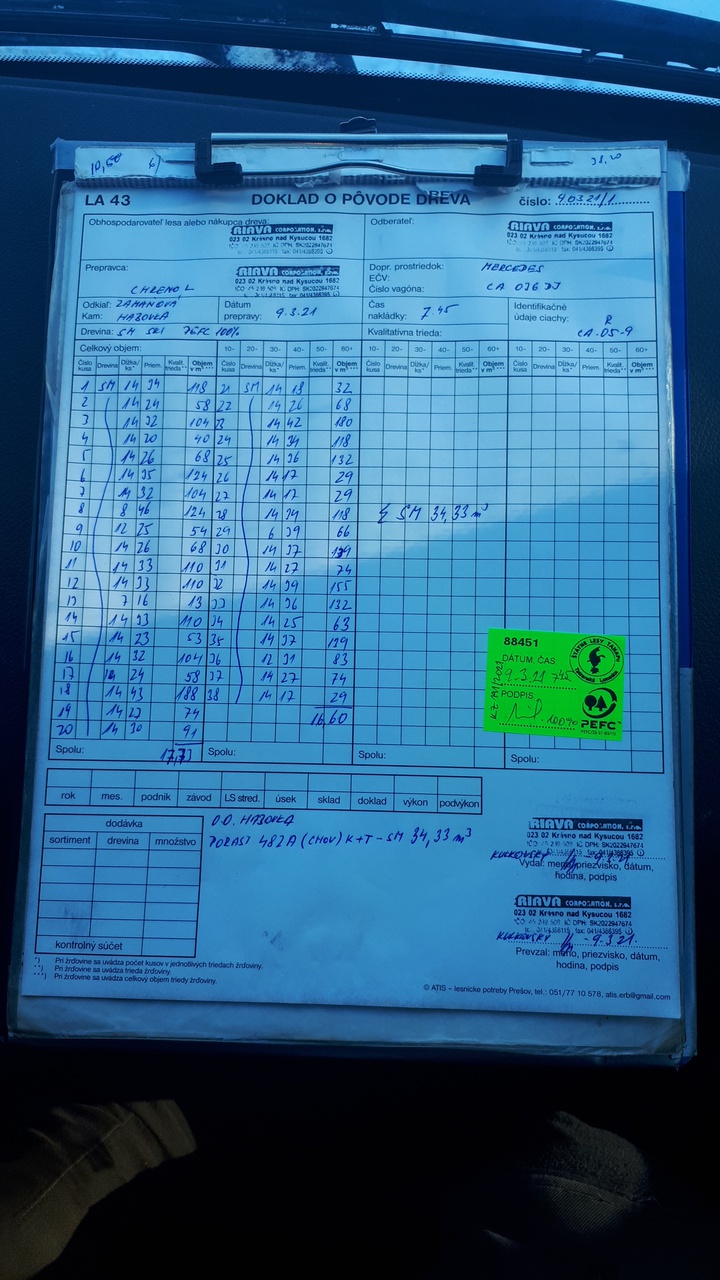 10,50 6/ 38,20
LA 43 DOKLAD O PÔVODE DREVA číslo: 90321/1
Obhospodarovateľ lesa alebo nákupca dreva: Odberateľ:
RIAVA CORPORATION, s.r.o. RIAVA CORPORATION, s.r.o.
023 02 Krásno nad Kysucou 1682 023 02 Krásno nad Kysucou 1682
Prepravca: RIAVA CORPORATION, s.r.o. Dopr. prostriedok: MERCEDES
023 02 Krásno nad Kysucou 1682 EČV:
Číslo vagóna: CA 036 DJ
Odkiaľ: ZAHANOVÁ Dátum Čas Identifikačné
Kam: HABOVKA prepravy: 9.3.21 nakládky: 7.45 údaje ciachy: R
CA-05-9
Drevina: SM SRI PEFC 100% Kvalitatívna trieda:
Celkový objem: 10- 20- 30- 40- 50- 60+ 10- 20- 30- 40- 50- 60+
Číslo kusa Drevina Dĺžka/ks* Priem. Kvalit. trieda** Objem v m³ *** Číslo kusa Drevina Dĺžka/ks* Priem. Kvalit. trieda** Objem v m³ *** Číslo kusa Drevina Dĺžka/ks* Priem. Kvalit. trieda** Objem v m³ *** Číslo kusa Drevina Dĺžka/ks* Priem. Kvalit. trieda** Objem v m³ ***
1 SM 14 34 118 21 SM 14 18 32
2 14 24 58 22 14 26 68
3 14 32 104 23 14 42 180
4 14 20 40 24 14 34 118
5 14 26 68 25 14 36 132
6 14 35 124 26 14 17 29
7 14 32 104 27 14 17 29
8 8 46 124 28 14 34 118 Σ SM 34,33 m³
9 12 25 54 29 6 39 66
10 14 26 68 30 14 37 139
11 14 33 110 31 14 27 74
12 14 33 110 32 14 39 155
13 7 16 13 33 14 36 132
14 14 33 110 34 14 25 63
15 14 23 53 35 14 37 139
16 14 32 104 36 12 31 83
17 14 24 58 37 14 27 74
18 14 43 188 38 14 17 29
19 14 27 74 16,60
20 14 30 91
Spolu: 17,73 Spolu: Spolu: Spolu:
88451
DÁTUM, ČAS
9.3.21 745
PODPIS
100%
ŠTÁTNE LESY TANAPU
Tatranská Lomnica
PEFC
rok mes. podnik závod LS stred. úsek sklad doklad výkon podvýkon
dodávka
sortiment drevina množstvo
kontrolný súčet
O.O. HABOVKA
PORAST 482A (CHOV) K+T - SM 34,33 m³
RIAVA CORPORATION, s.r.o.
023 02 Krásno nad Kysucou 1682
KULKOVSKY -9.3.21
Vydal: meno, priezvisko, dátum,
hodina, podpis
RIAVA CORPORATION, s.r.o.
023 02 Krásno nad Kysucou 1682
KULKOVSKY -9.3.21.
Prevzal: meno, priezvisko, dátum,
hodina, podpis
*) Pri žrďovine sa uvádza počet kusov v jednotlivých triedach žrďoviny.
**) Pri žrďovine sa uvádza trieda žrďoviny.
***) Pri žrďovine sa uvádza celkový objem triedy žrďoviny.
© ATIS – lesnícke potreby Prešov, tel.: 051/77 10 578, atis.erb@gmail.com